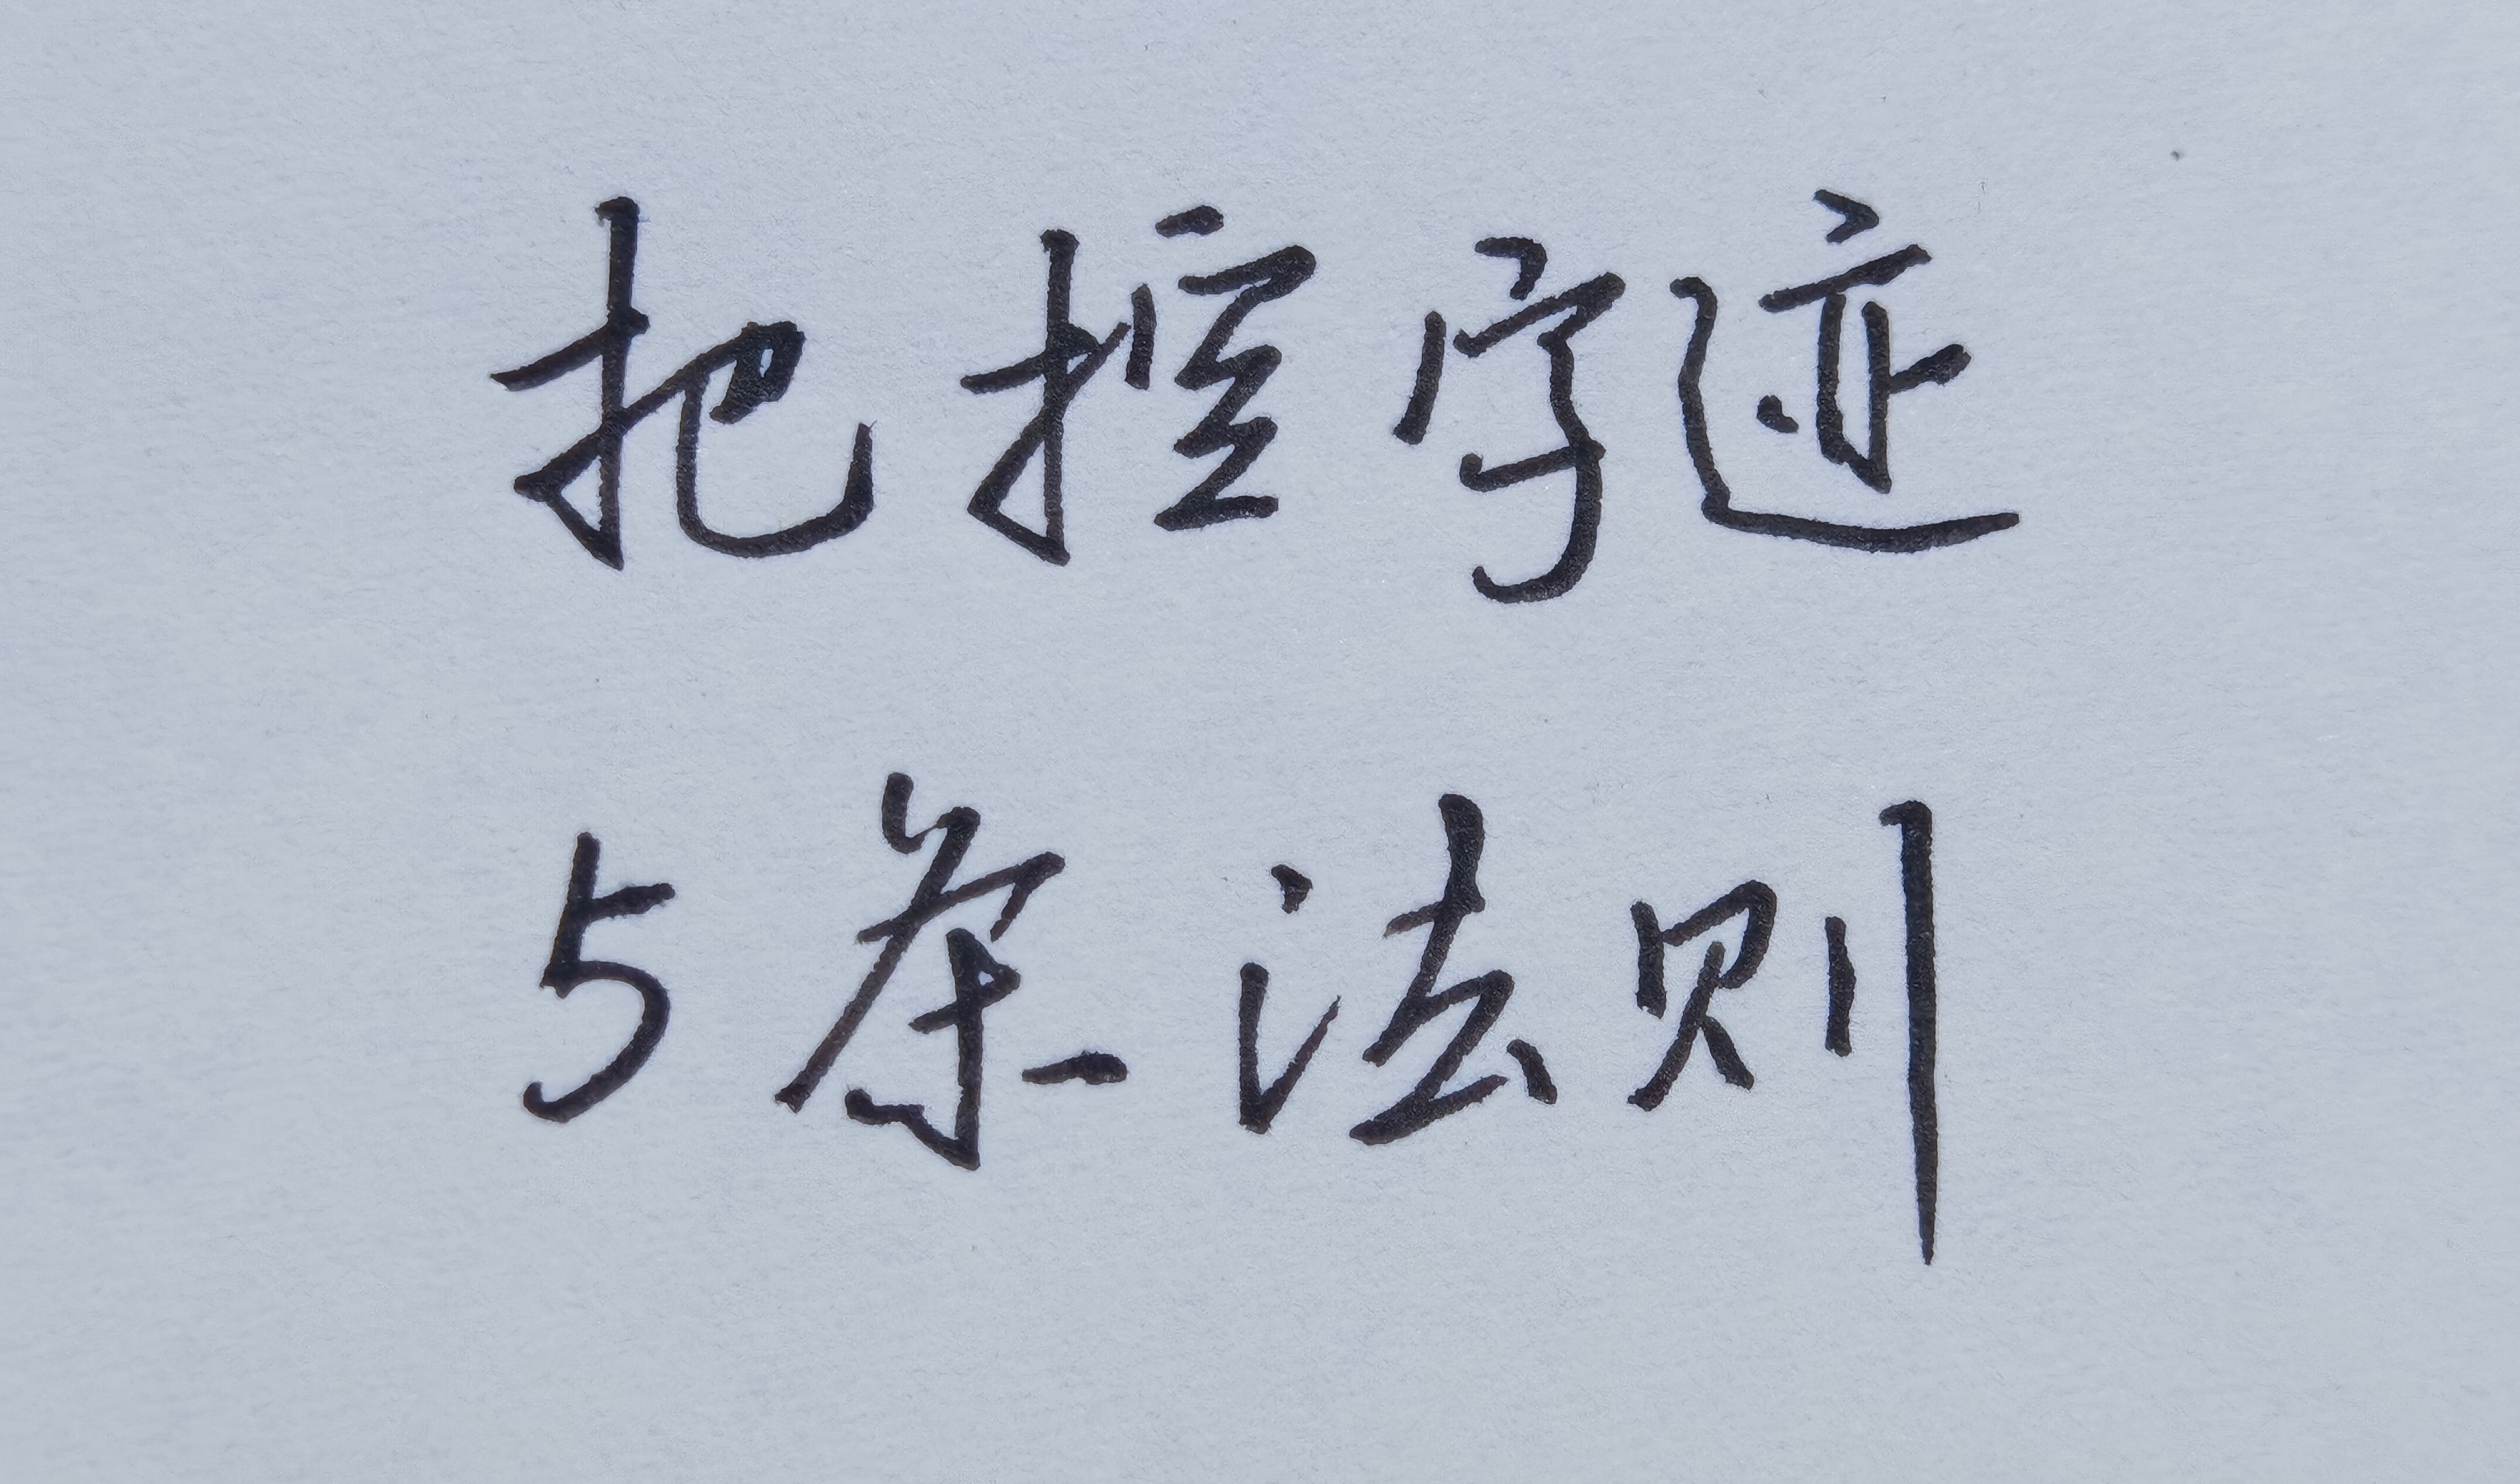 把控字迹
5条法则